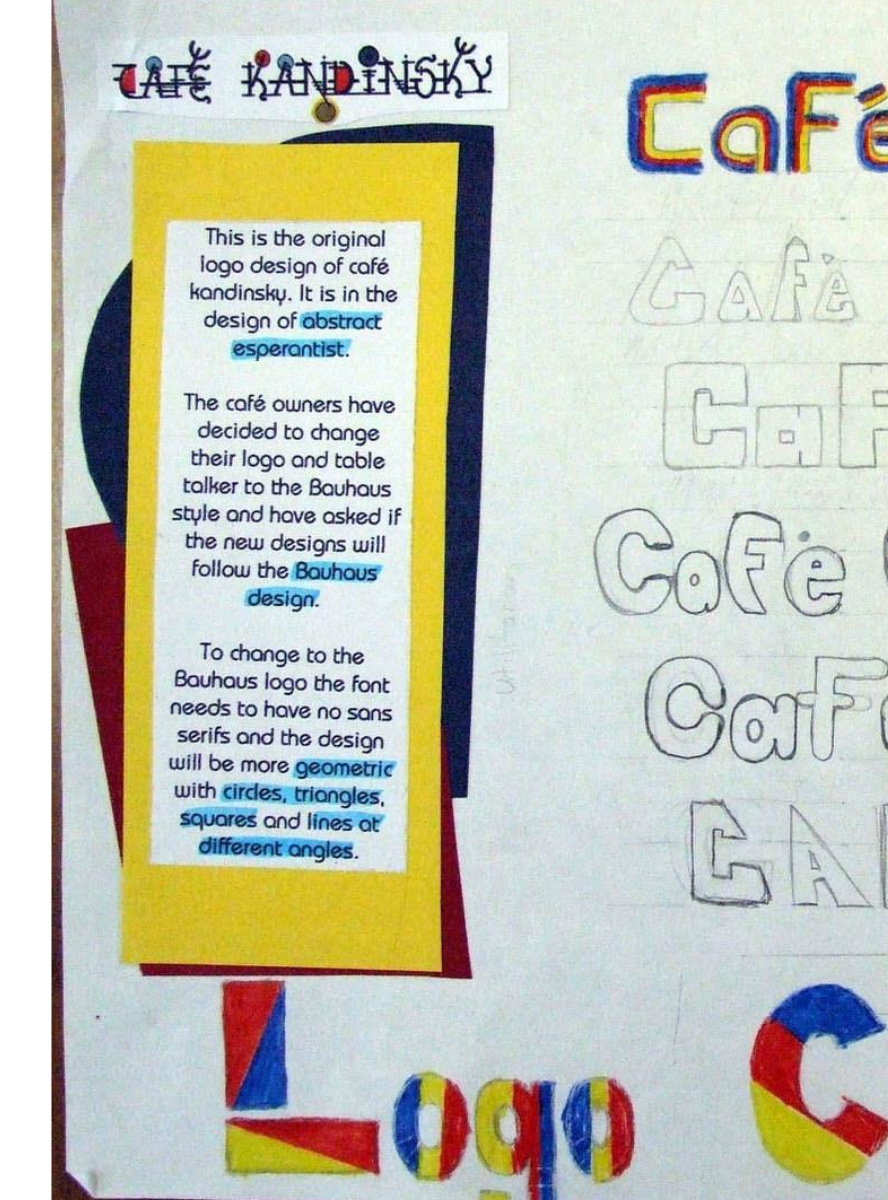 CAFÉ KANDINSKY
This is the original
logo design of café
kandinsky. It is in the
design of abstract
esperantist.
The café owners have
decided to change
their logo and table
talker to the Bauhaus
style and have asked if
the new designs will
follow the Bauhaus
design.
To change to the
Bauhaus logo the font
needs to have no sans
serifs and the design
will be more geometric
with circles, triangles,
squares and lines at
different angles.
Café
Cafė
CaF
Cafė
CaF
CA
Logo C